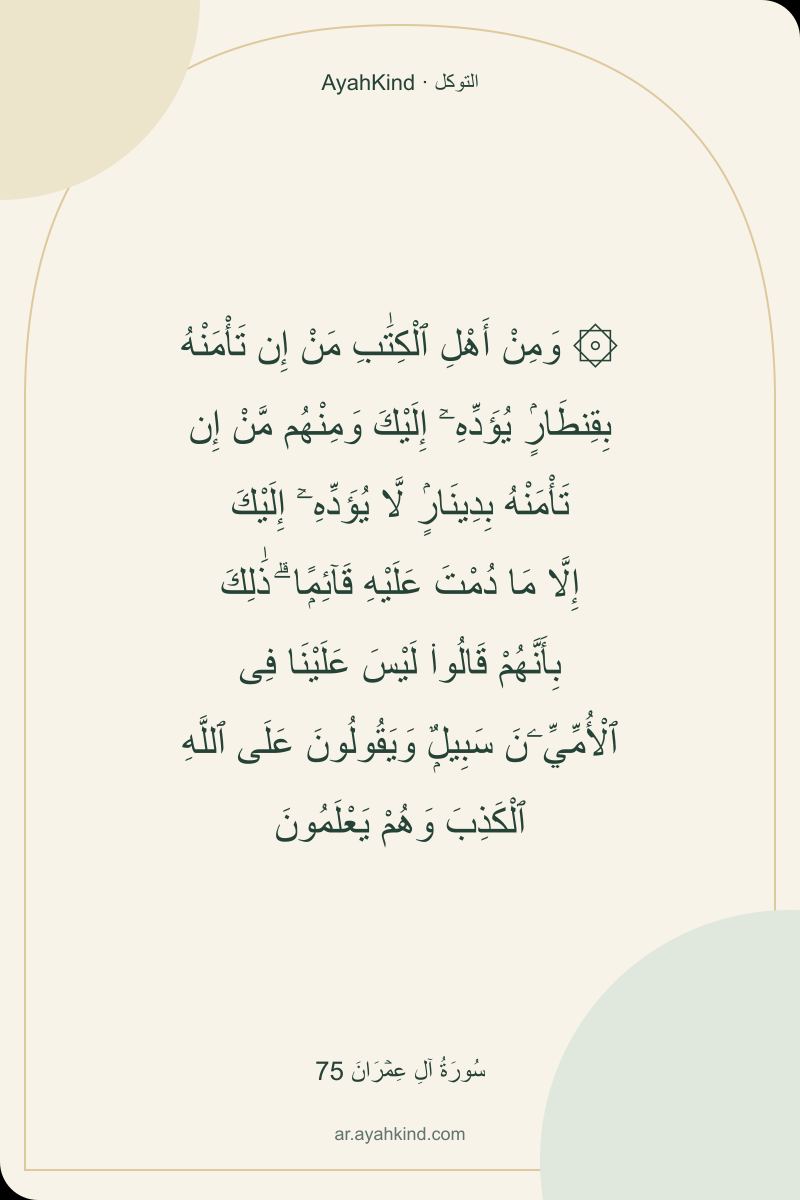 AyahKind · التوكل
۞ وَمِنْ أَهْلِ ٱلْكِتَٰبِ مَنْ إِن تَأْمَنْهُ
بِقِنطَارٍۢ يُؤَدِّهِۦٓ إِلَيْكَ وَمِنْهُم مَّنْ إِن
تَأْمَنْهُ بِدِينَارٍۢ لَّا يُؤَدِّهِۦٓ إِلَيْكَ
إِلَّا مَا دُمْتَ عَلَيْهِ قَآئِمًۭا ۗ ذَٰلِكَ
بِأَنَّهُمْ قَالُوا۟ لَيْسَ عَلَيْنَا فِى
ٱلْأُمِّيِّـۧنَ سَبِيلٌۭ وَيَقُولُونَ عَلَى ٱللَّهِ
ٱلْكَذِبَ وَهُمْ يَعْلَمُونَ
سُورَةُ آلِ عِمۡرَانَ 75
ar.ayahkind.com